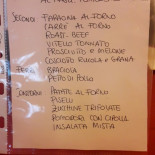 AL FORNO POMODORO
SECONDI FARAONA AL FORNO
CARRÈ AL FORNO
ROAST-BEEF
VITELLO TONNATO
PROSCIUTTO E MELONE
RUCOLA E GRANA
BRACIOLA
PETTO DI POLLO
CONTORNI PATATE AL FORNO
PISELLI
ZUCCHINE TRIFOLATE
POMODORI CON CIPOLLA
INSALATA MISTA